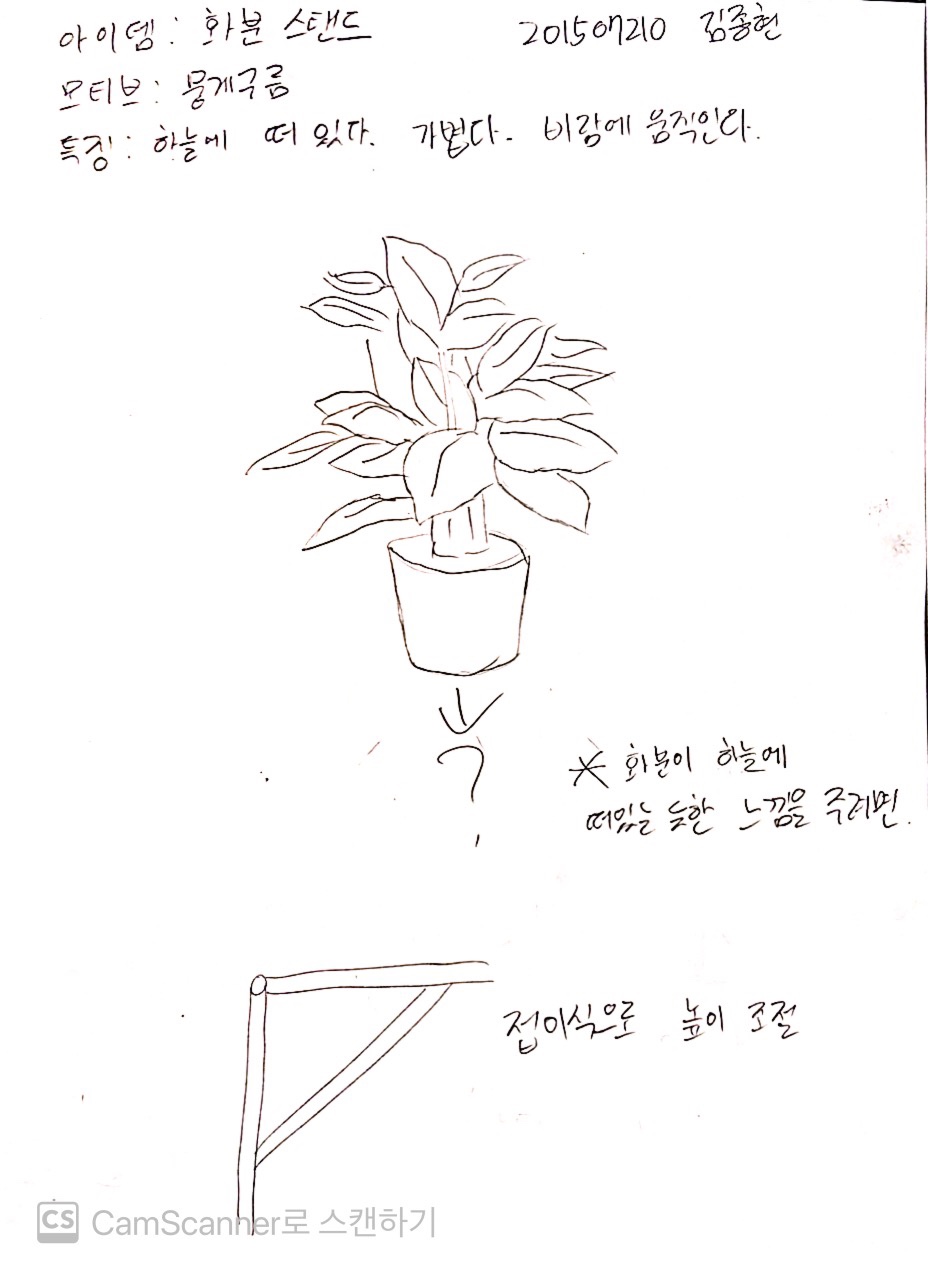 아이템: 화분 스탠드 201507210 김종현
모티브: 뭉게구름
특징: 하늘에 떠 있다. 가볍다. 바람에 움직인다.
?
* 화분이 하늘에
떠있는 듯한 느낌을 주려면.
접이식으로 높이 조절
CS CamScanner로 스캔하기